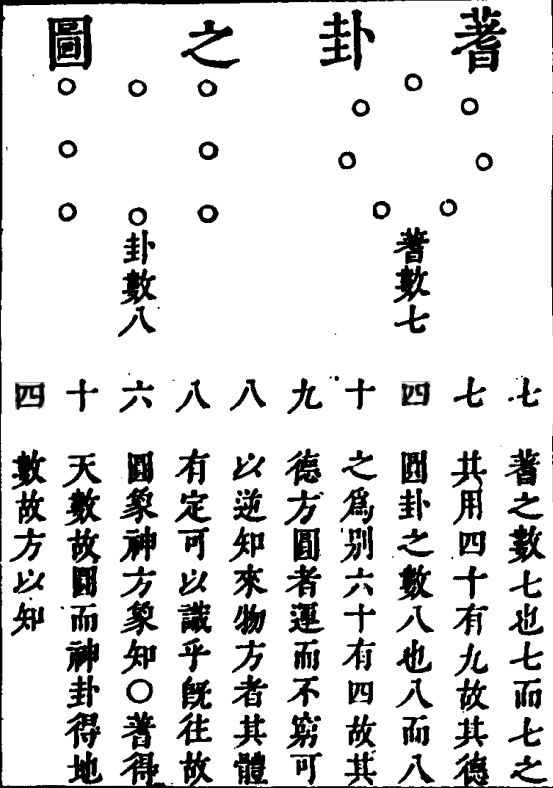 蓍卦之圖
蓍數七
卦數八
七七四十九八八六十四
蓍之數七也七而七之
其用四十有九故其德
圓卦之數八也八而八
之爲别六十有四故其
德方圓者運而不窮可
以逆知來物方者其體
有定可以識乎旣往故
圓象神方象知○蓍得
天數故圓而神卦得地
數故方以知